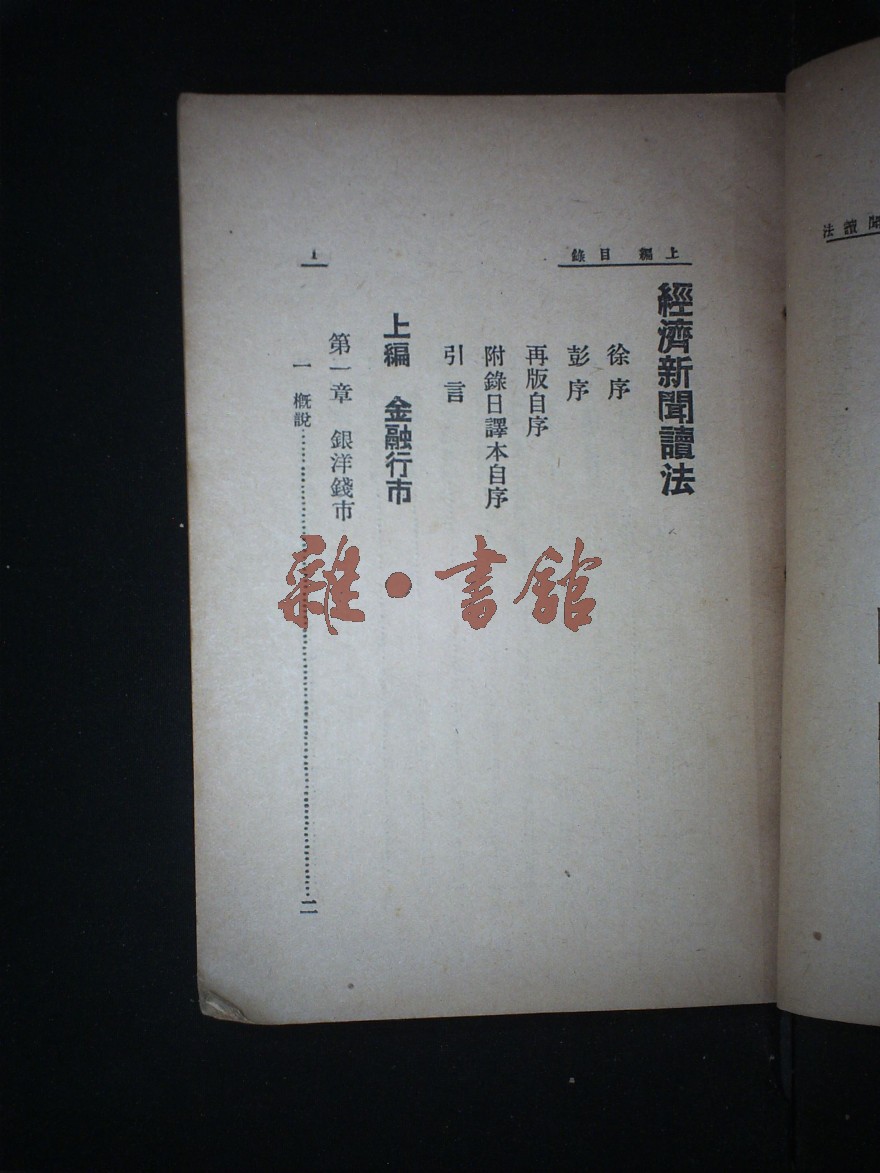 上編 目錄
1
經濟新聞讀法
徐序
彭序
再版自序
附錄日譯本自序
引言
上編 金融行市
第一章 銀洋錢市
一 概說……二
雜•書館
聞讀法